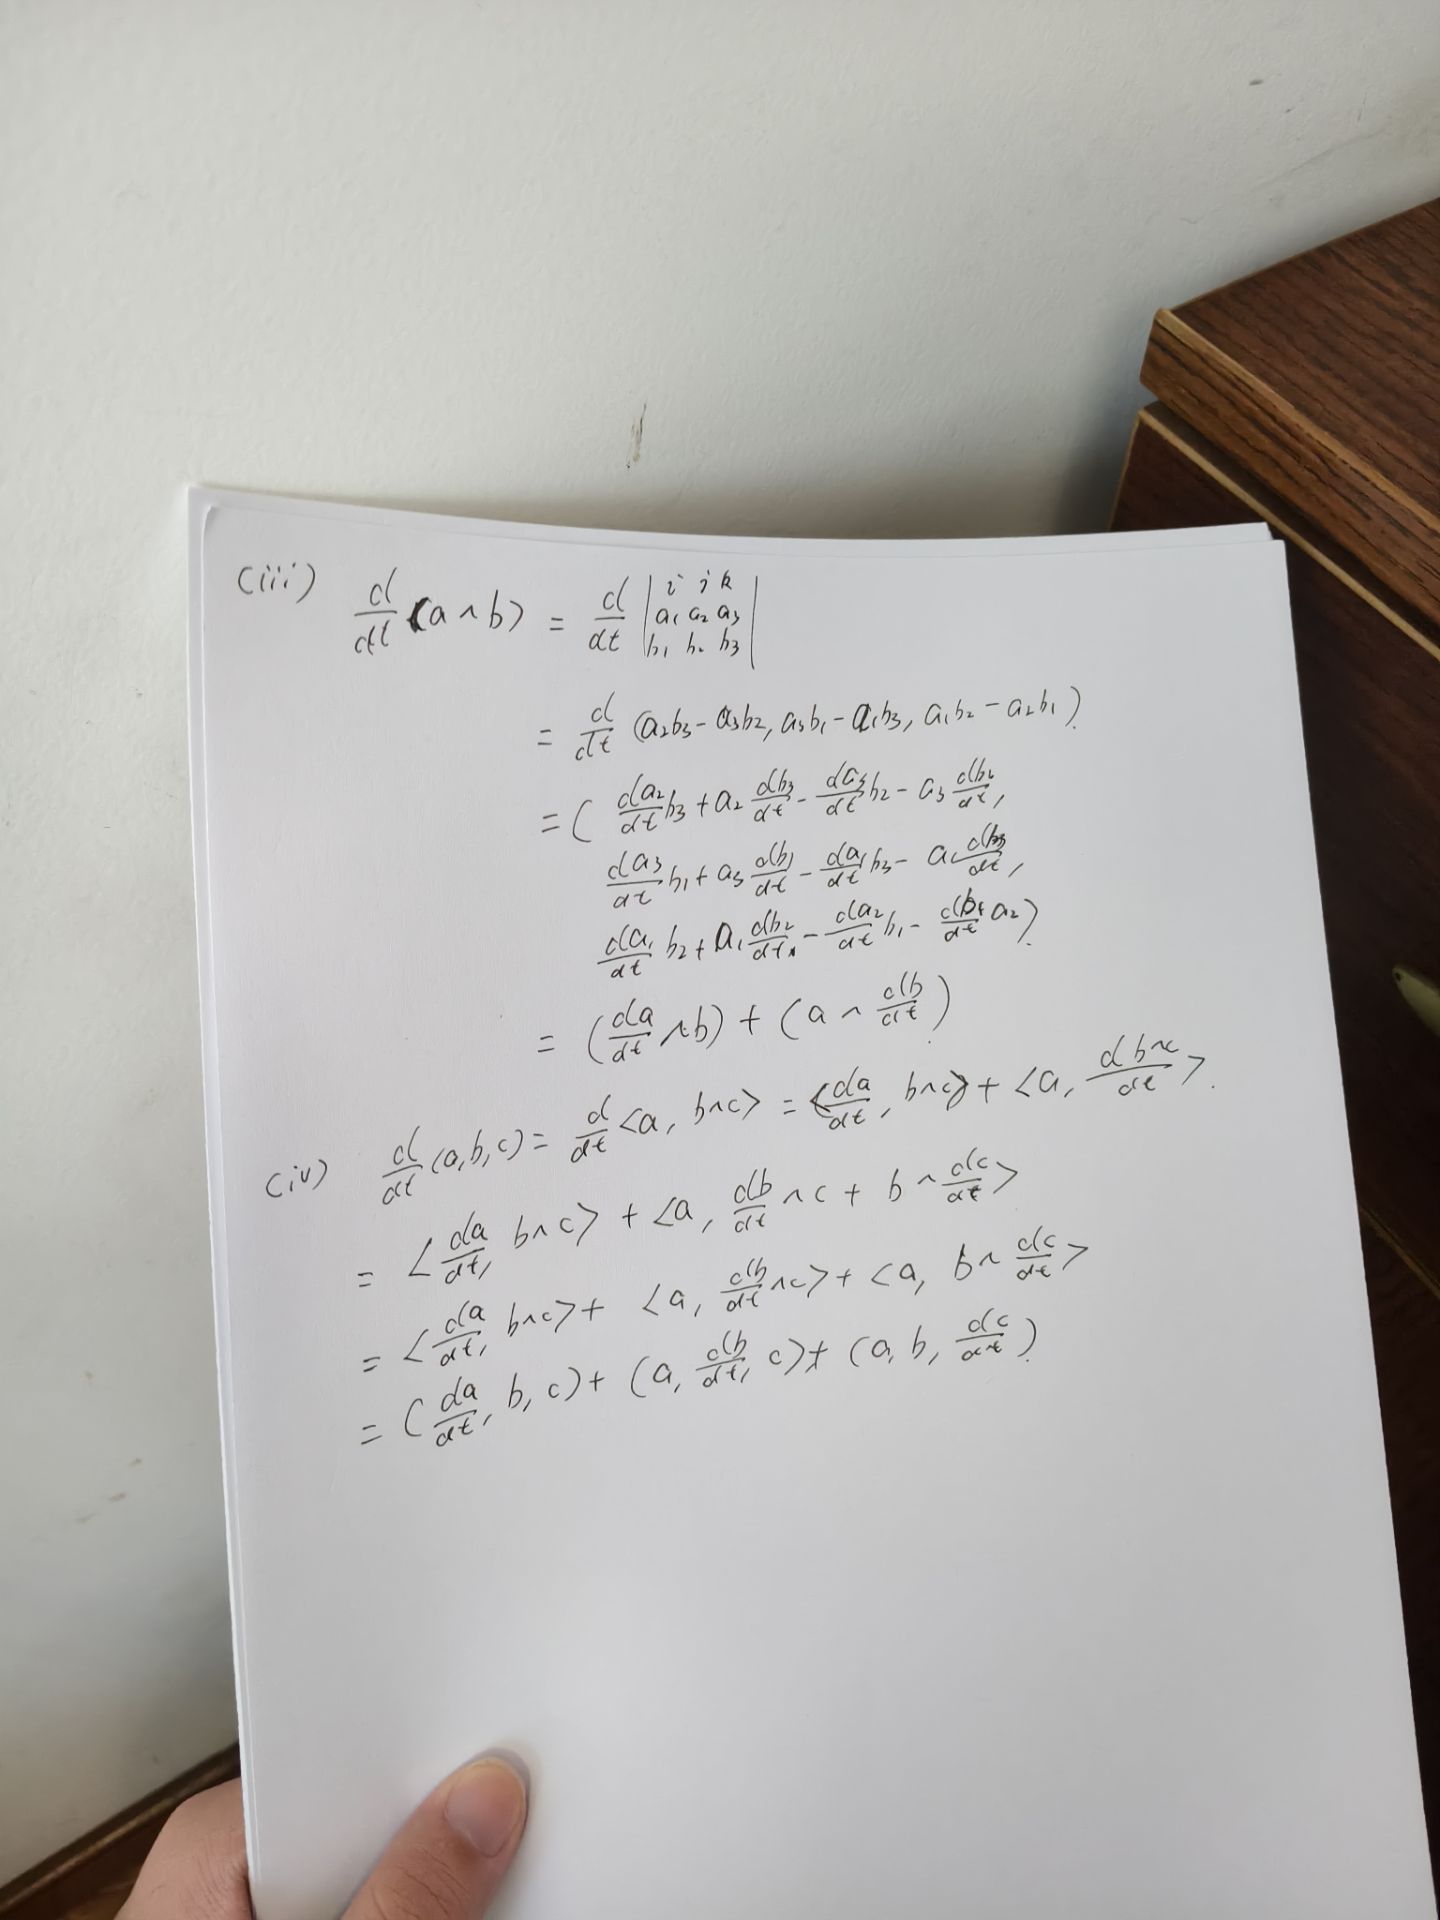 (iii) d/dt (a ∧ b) = d/dt | i j k
a₁ a₂ a₃
b₁ b₂ b₃ |
= d/dt (a₂b₃ - a₃b₂, a₃b₁ - a₁b₃, a₁b₂ - a₂b₁)
= ( da₂/dt b₃ + a₂ db₃/dt - da₃/dt b₂ - a₃ db₂/dt,
da₃/dt b₁ + a₃ db₁/dt - da₁/dt b₃ - a₁ db₃/dt,
da₁/dt b₂ + a₁ db₂/dt - da₂/dt b₁ - db₁/dt a₂)
= (da/dt ∧ b) + (a ∧ db/dt)
(iv) d/dt (a,b,c) = d/dt <a, b∧c> = <da/dt, b∧c> + <a, d b∧c/dt>.
= <da/dt, b∧c> + <a, db/dt ∧ c + b ∧ dc/dt>
= <da/dt, b∧c> + <a, db/dt ∧ c> + <a, b ∧ dc/dt>
= (da/dt, b, c) + (a, db/dt, c) + (a, b, dc/dt)